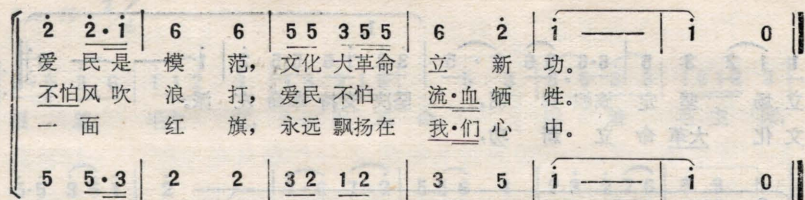 2̇ 2̇·1̇ | 6 6 | 5 5 3 5 5 | 6 2̇ | 1̇ — | 1̇ 0 ‖
爱 民是 模 范，文化 大革命 立 新 功。
不怕风吹 浪 打，爱民 不怕 流·血 牺 牲。
一 面 红 旗，永远 飘扬在 我·们 心 中。
5 5·3 | 2 2 | 3 2 1 2 | 3 5 | 1̇ — | 1̇ 0 ‖